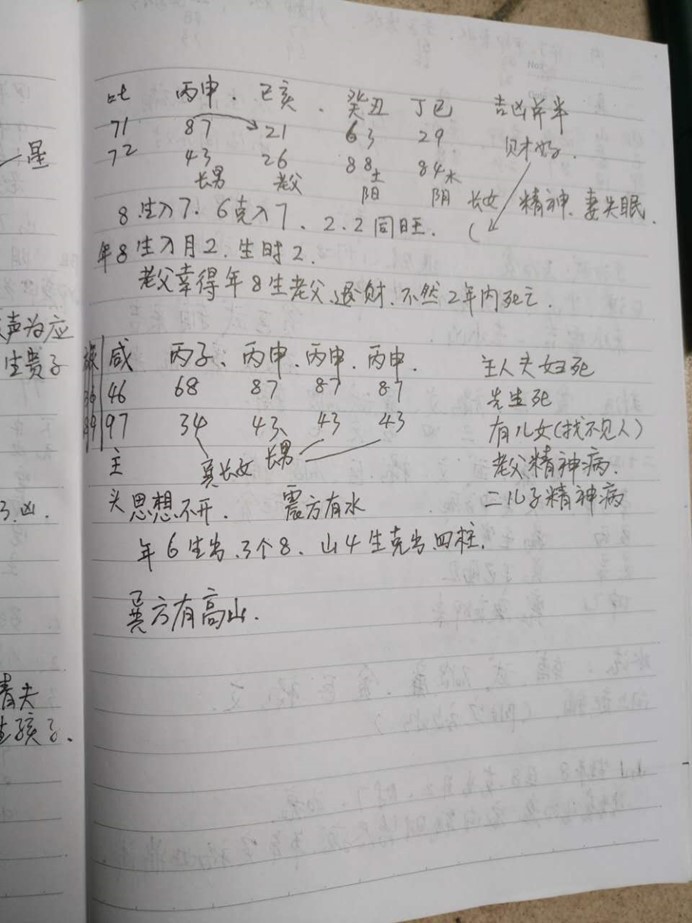 比 丙申、己亥、癸丑 丁巳 吉凶半半
71 87 21 63 29 财好.
72 43 26 88土 84水
长男 老父 阳 阴 长女 精神、妻失眠.
8生入7、6克入7、2.2同旺.
年8生入月2、生时2.
老父幸得年8生老父、退财、不然2年内死亡.
咸 丙子、丙申、丙申、丙申. 主人夫妇死
46 68 87 87 87 先生死
97 34 43 43 43 有儿女(找不见人)
主 巽长女 长男 老父精神病.
头思想不开. 震方有水 二儿子精神病
年6生当、3个8、山4生克当四柱.
巽方有高山.
一是
声为应
生贵子
36
89
凶.
青夫
生孩子.